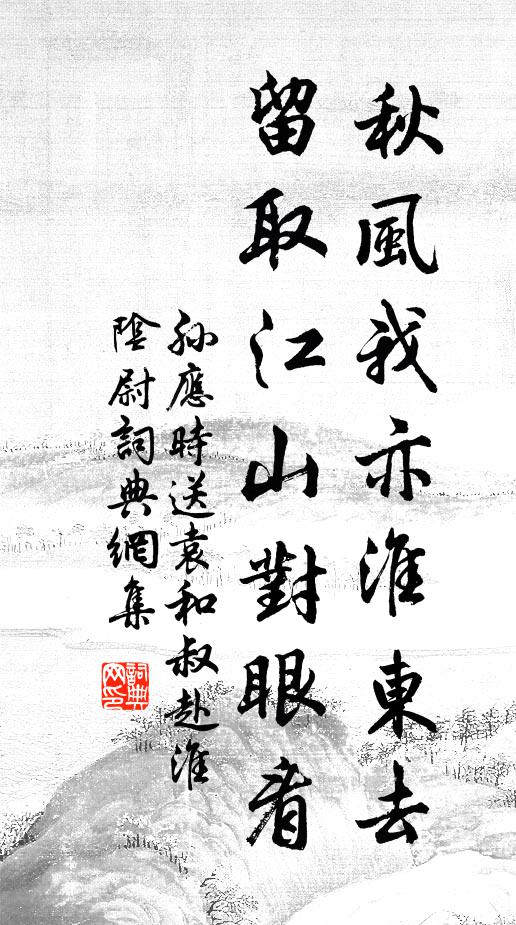 秋風我亦淮東去
留取江山對眼看
孫應時送袁和叔赴淮
陰尉詞典網集
詞典
网印